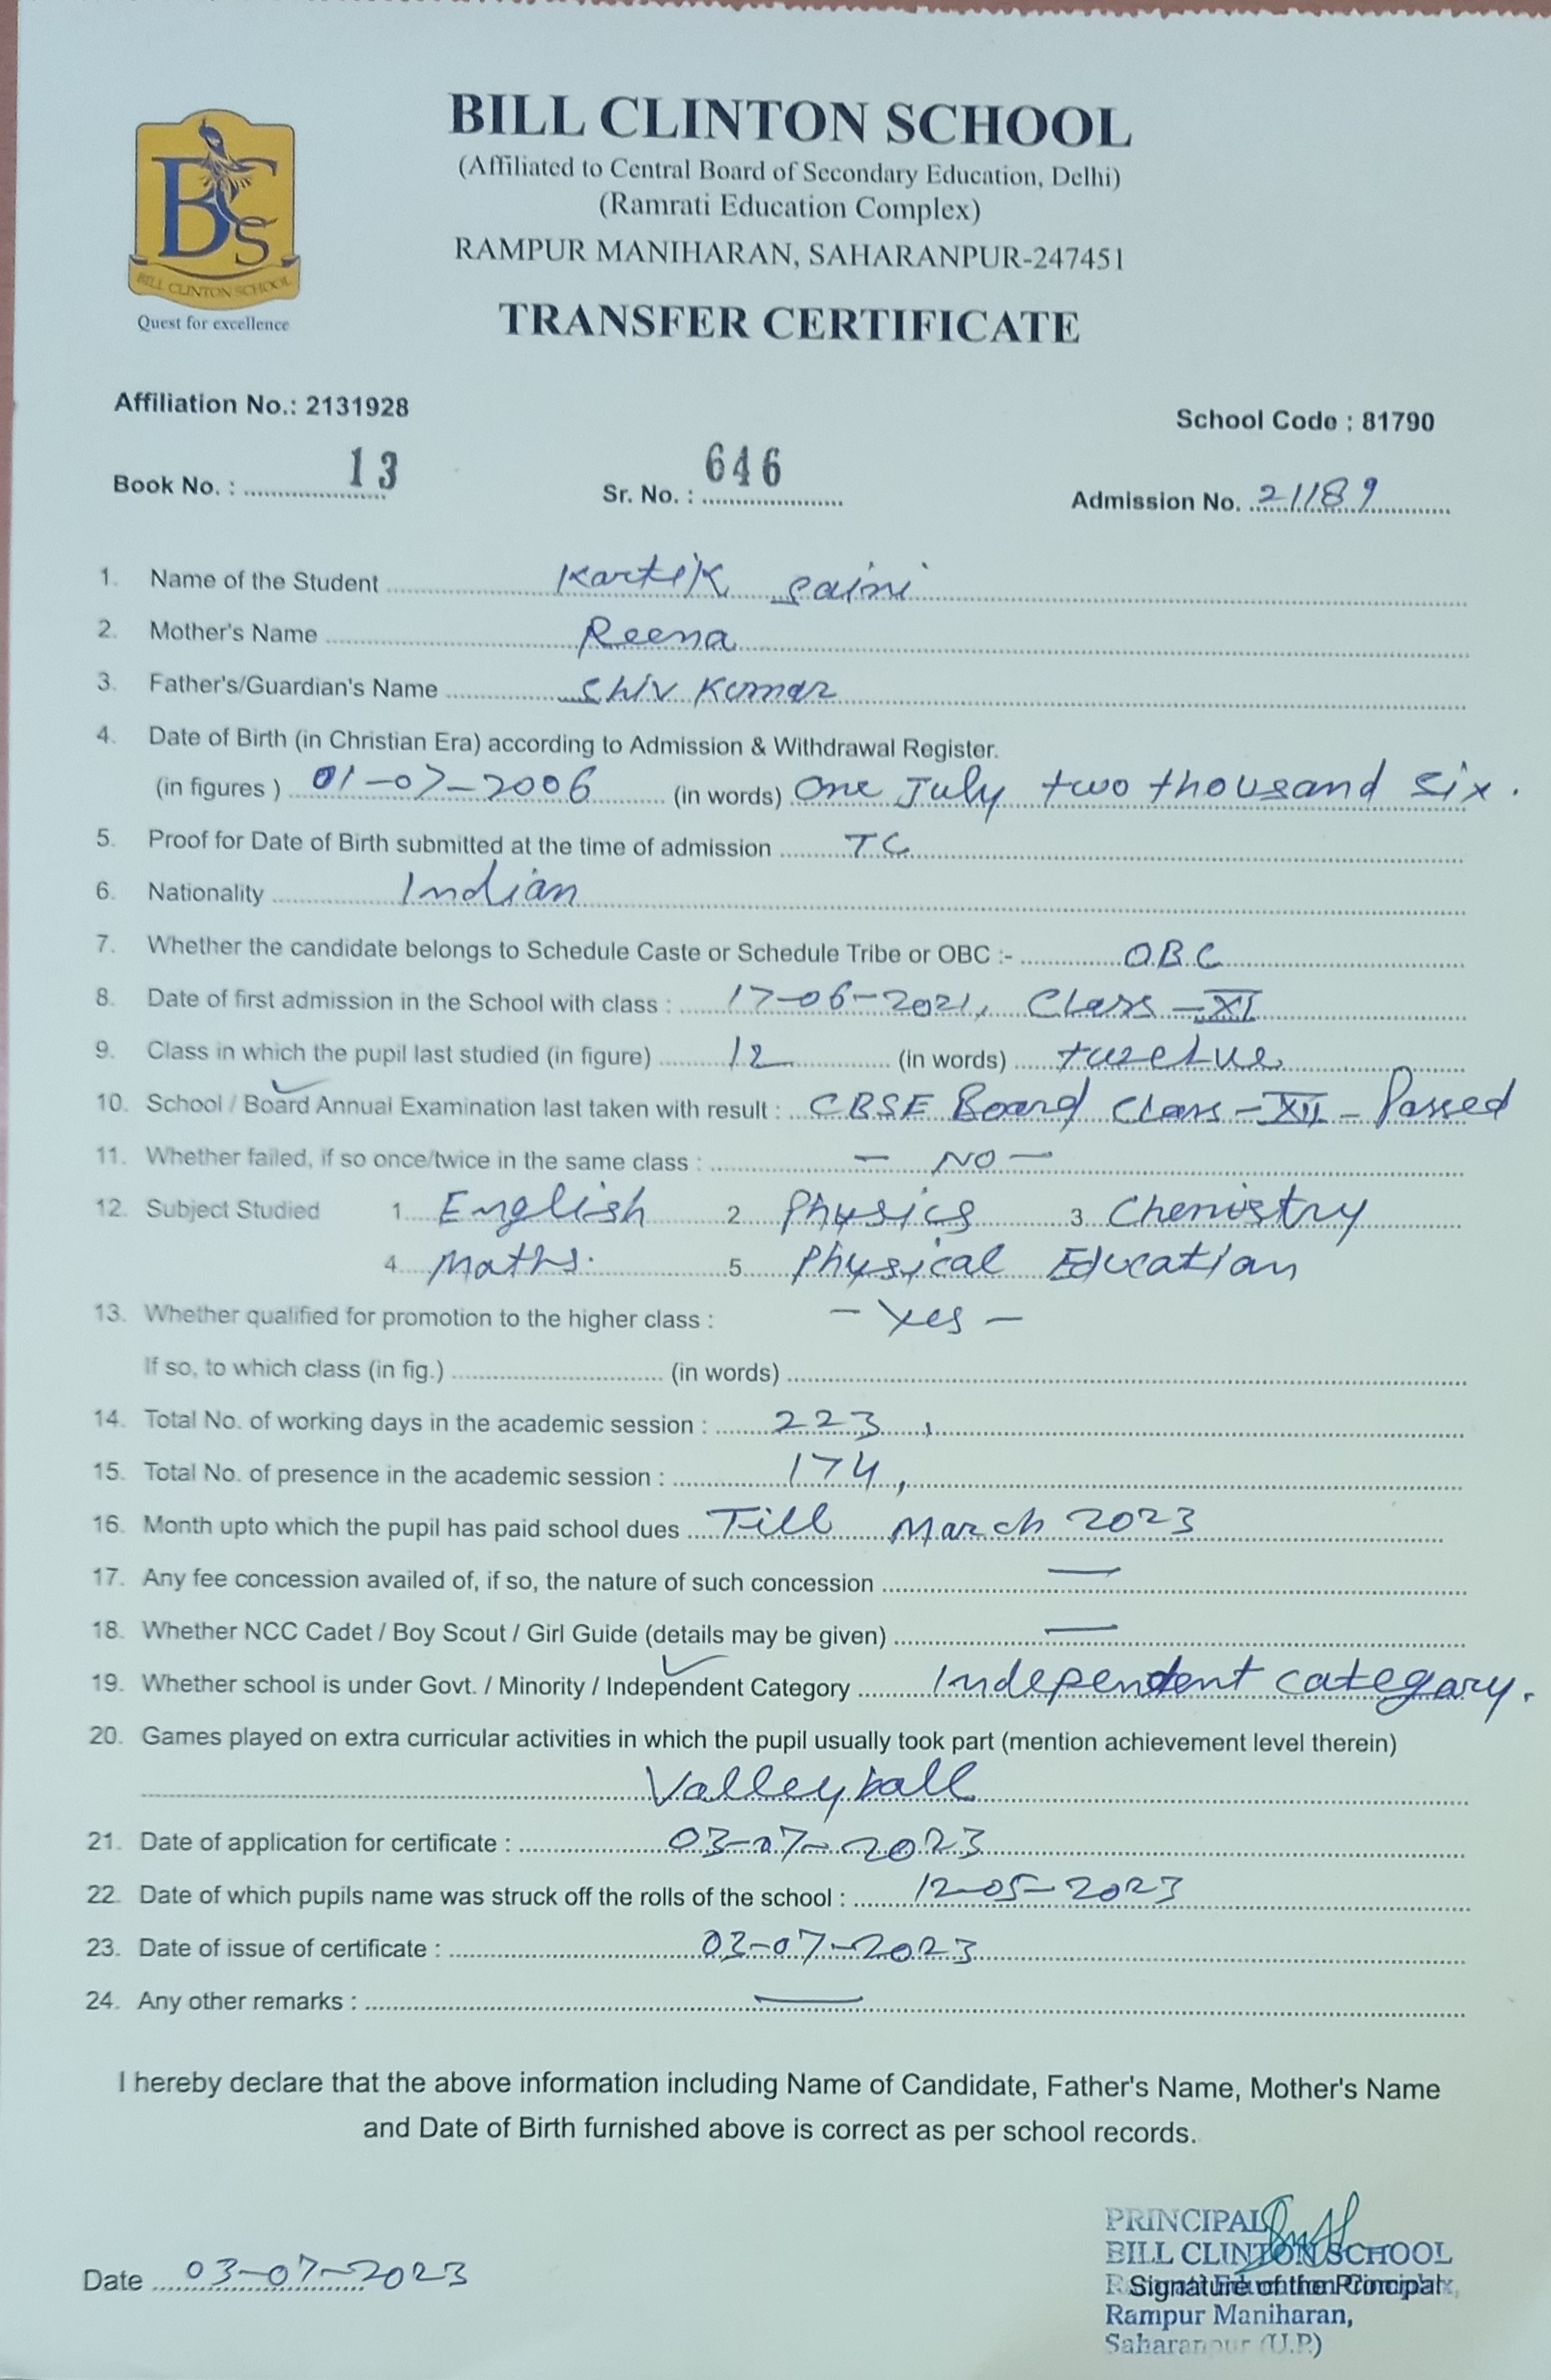 BILL CLINTON SCHOOL
(Affiliated to Central Board of Secondary Education, Delhi)
(Ramrati Education Complex)
RAMPUR MANIHARAN, SAHARANPUR-247451
BCS
BILL CLINTON SCHOOL
Quest for excellence
TRANSFER CERTIFICATE
Affiliation No.: 2131928
School Code : 81790
Book No. : 13 Sr. No. : 646 Admission No. 21189
1. Name of the Student Kartik Saini
2. Mother's Name Reena
3. Father's/Guardian's Name Shiv Kumar
4. Date of Birth (in Christian Era) according to Admission & Withdrawal Register.
(in figures ) 01-07-2006 (in words) One July two thousand six.
5. Proof for Date of Birth submitted at the time of admission TC
6. Nationality Indian
7. Whether the candidate belongs to Schedule Caste or Schedule Tribe or OBC :- OBC
8. Date of first admission in the School with class : 17-06-2021, Class-XI
9. Class in which the pupil last studied (in figure) 12 (in words) twelve
10. School / Board Annual Examination last taken with result : CBSE Board Class-XII-Passed
11. Whether failed, if so once/twice in the same class : - NO -
12. Subject Studied 1. English 2. Physics 3. Chemistry
4. Maths. 5. Physical Education
13. Whether qualified for promotion to the higher class : - Yes -
If so, to which class (in fig.) (in words)
14. Total No. of working days in the academic session : 223,
15. Total No. of presence in the academic session : 174,
16. Month upto which the pupil has paid school dues Till March 2023
17. Any fee concession availed of, if so, the nature of such concession —
18. Whether NCC Cadet / Boy Scout / Girl Guide (details may be given) —
19. Whether school is under Govt. / Minority / Independent Category Independent categary.
20. Games played on extra curricular activities in which the pupil usually took part (mention achievement level therein)
Valleyball
21. Date of application for certificate : 03-07-2023
22. Date of which pupils name was struck off the rolls of the school : 12-05-2023
23. Date of issue of certificate : 03-07-2023
24. Any other remarks : —
I hereby declare that the above information including Name of Candidate, Father's Name, Mother's Name
and Date of Birth furnished above is correct as per school records.
PRINCIPAL
BILL CLINTON SCHOOL
Signature of the Principal
Rampur Maniharan,
Saharanpur (U.P.)
Date 03-07-2023